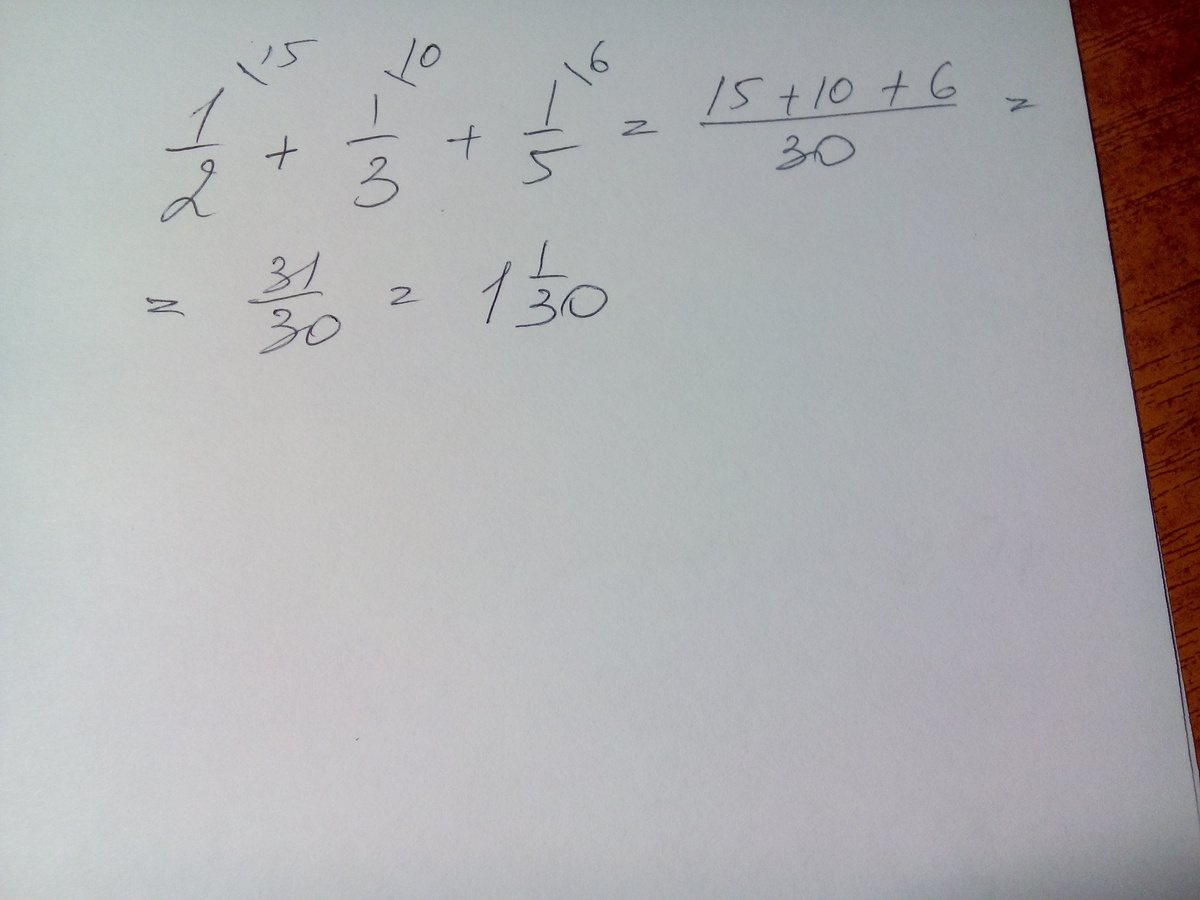 1/2 \15 + 1/3 \10 + 1/5 \6 = (15 + 10 + 6)/30 =
= 31/30 = 1 1/30